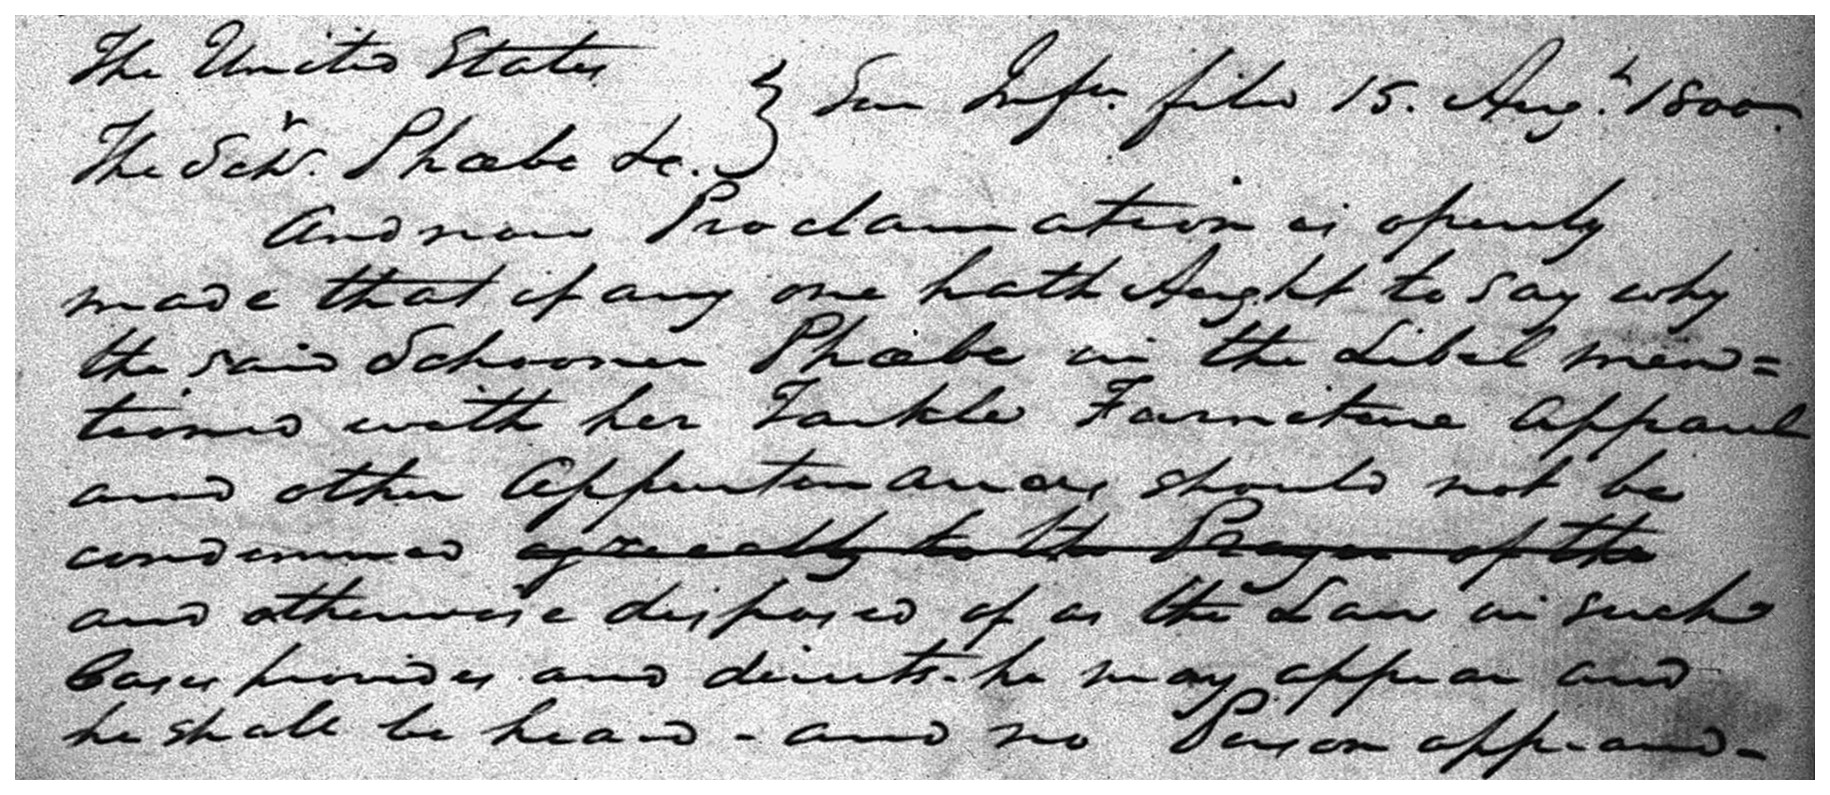 The United States
The Schr. Phœbe &c. } Sur Infn. filed 15. Augt. 1800.
And now Proclamation is openly
made that if any one hath Aught to say why
the said Schooner Phœbe in the Libel men=
tioned with her Tackle Furniture Apparel
and other Appurtenances should not be
condemned agreeably to the Prayer of the
and otherwise disposed of as the Law in such
Cases provides and directs - he may appear and
he shall be heard - and no Person appeard -